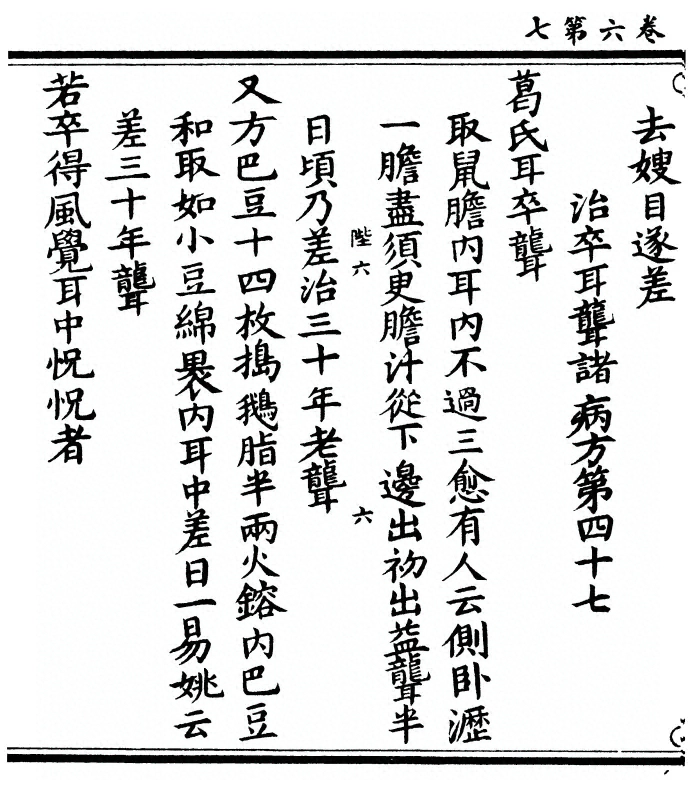 卷六第七
去嫂目遂差
治卒耳聾諸病方第四十七
葛氏耳卒聾
取鼠膽內耳內不過三愈有人云側卧瀝
一膽盡須更膽汁從下邊出初出益聾半
陛六
六
日頃乃差治三十年老聾
又方巴豆十四枚搗鵝脂半兩火鎔內巴豆
和取如小豆綿裹內耳中差日一易姚云
差三十年聾
若卒得風覺耳中怳怳者